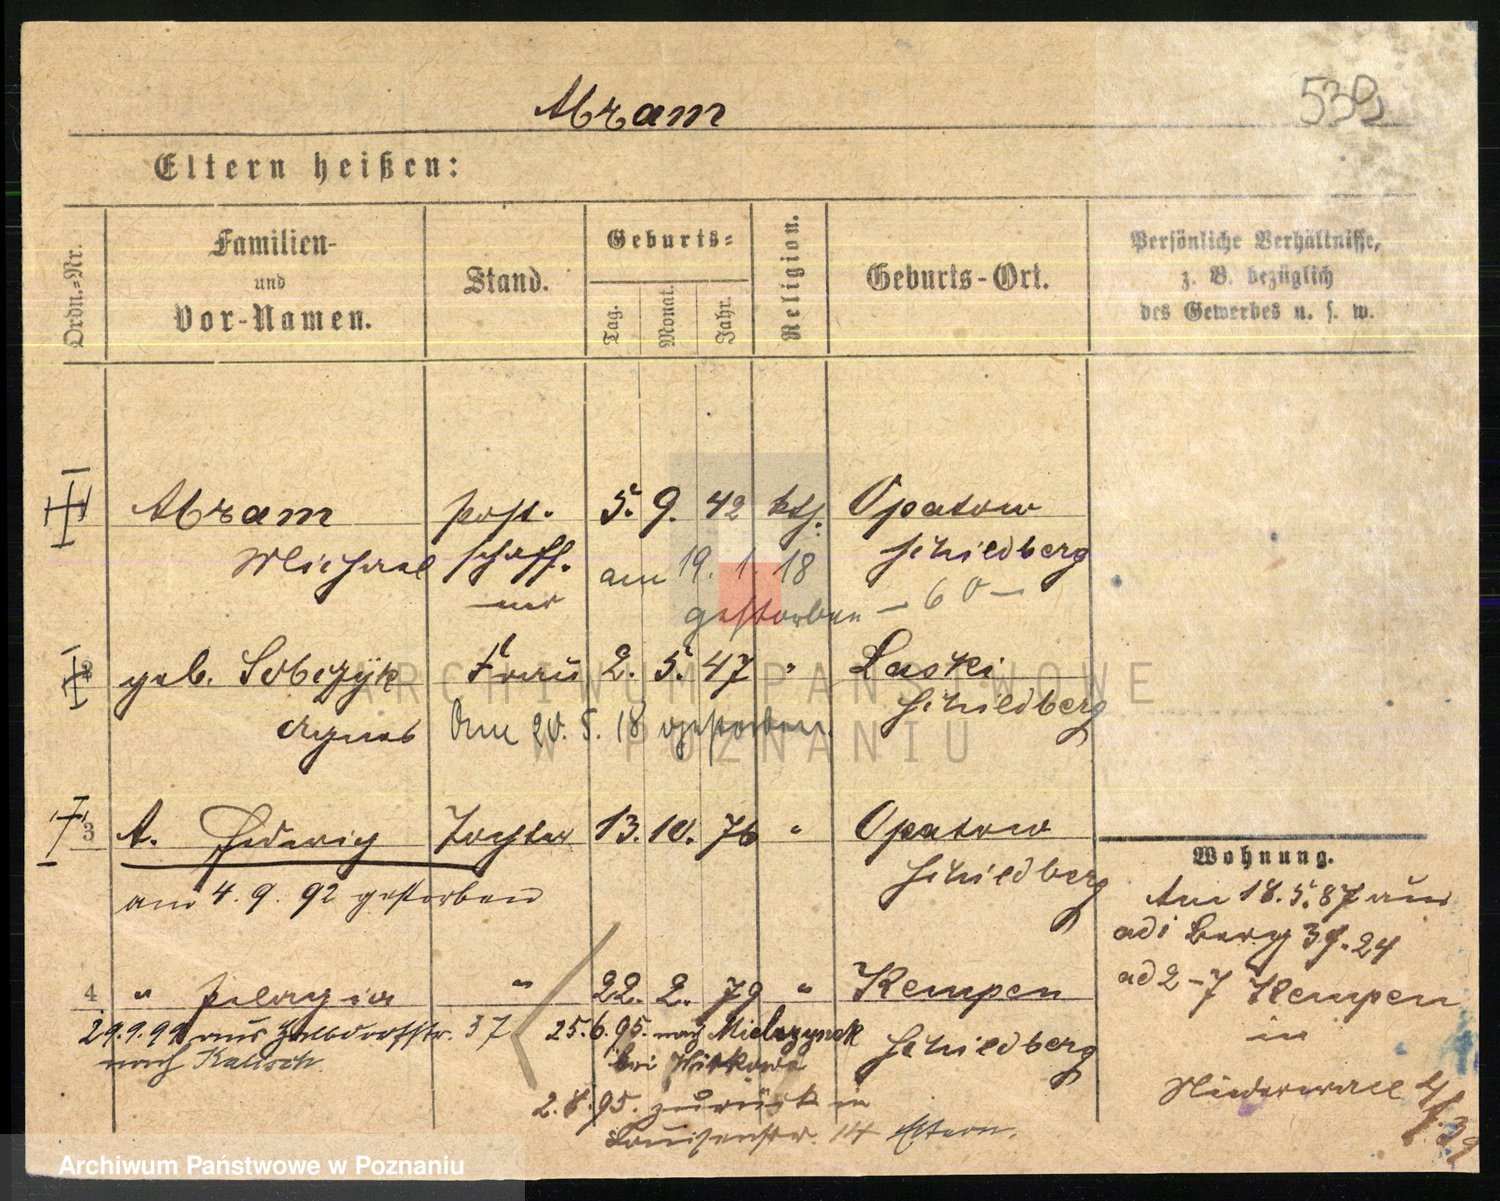 Abram
532
Eltern heißen:
Ordn.-Nr.
Familien-
und
Vor-Namen.
Stand.
Geburts-
Tag.
Monat.
Jahr.
Religion.
Geburts-Ort.
Persönliche Verhältnisse,
z. B. bezüglich
des Gewerbes u. s. w.
Abram Post- 5. 9. 42 kth. Opatow
Michael schaff- Schildberg
ner am 19. 1. 18
gestorben — 60 —
geb. Sobczyk Frau 2. 5. 47 " Laski
Agnes Schildberg
Am 20. 5. 18 gestorben.
3 A. Hedwig Tochter 13. 10. 76 " Opatow
Schildberg
am 4. 9. 92 gestorben
4 " Pelagia " 22. 2. 79 " Kempen
Schildberg
29.9.99 aus 37
nach Kalisch
25.6.95. nach Mielzynek
bei Witkowo
2.8.95. zurück in
Louisenstr. 14 Eltern.
Wohnung.
Am 18.5.87 aus
ad 1 Berg 39.24
ad 2-7 Kempen
in
Niederwall 4
ARCHIWUM PAŃSTWOWE
W POZNANIU
Archiwum Państwowe w Poznaniu